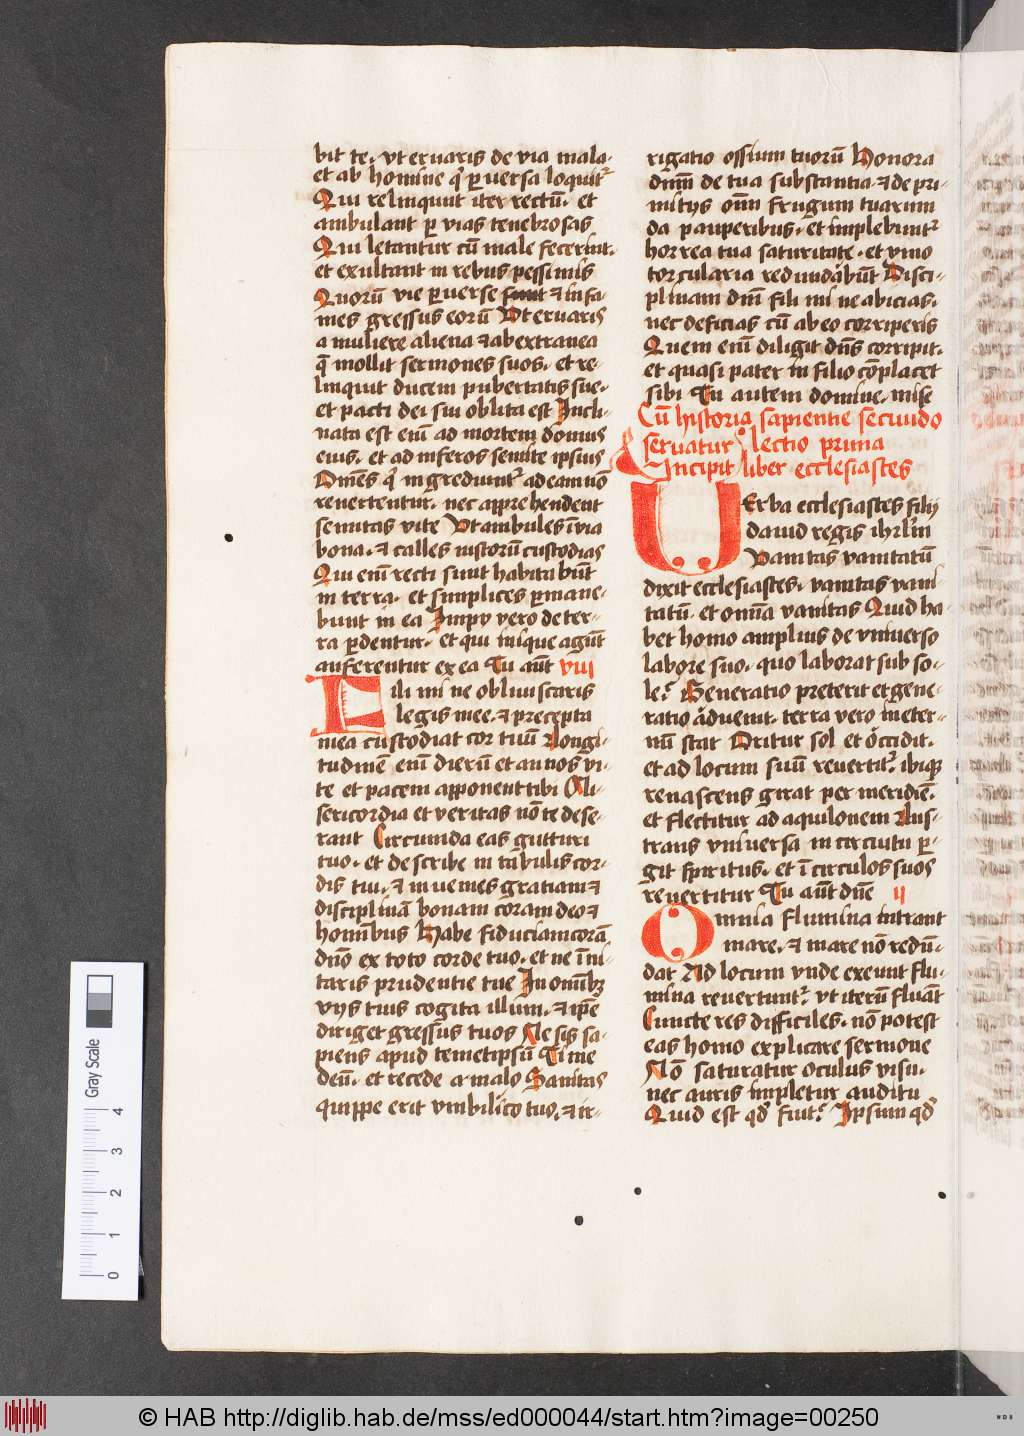 bit te. vt eruaris de via mala.
et ab homine qͥ ꝑuersa loquitᷣ
Qui relinquunt iter rectū. et
ambulant ꝑ vias tenebrosas
Qui letantur cū male fecerint.
et exultant in rebus pessimis
Quorū vie ꝑuerse sunt ⁊ infa-
mes gressus eorū Vt eruaris
a muliere aliena ⁊ ab extranea
q̄ mollit sermones suos. et re-
linquit ducem pubertatis sue.
et pacti dei sui oblita est Incli-
nata est eni̅ ad mortem domus
eius. et ad inferos semite ipsius
Om̄es qͥ ingrediuntᷣ ad eam nō
reuertentur. nec apprehendent
semitas vite Vt ambules ī via
bona. ⁊ calles iustorū custodias
Qui eni̅ recti sunt habitabūt
in terra. et simplices ꝑmane-
bunt in ea Impy vero de ter-
ra ꝑdentur. et qui inique agūt
auferentur ex ea Tu aūt viii
Fili mi ne obliuiscaris
legis mee. ⁊ precepta
mea custodiat cor tuū Longi-
tudinē eni̅ dierū et annos vi-
te et pacem apponent tibi Mi-
sericordia et veritas nō te dese-
rant Circumda eas gutturi
tuo. et describe in tabulis cor-
dis tui. ⁊ inuenies gratiam ⁊
disciplinā bonam coram deo ⁊
hominibus Habe fiduciam corā
dn̄o ex toto corde tuo. et ne īni-
taris prudentie tue In omnibꝫ
vijs tuis cogita illum. ⁊ ip̄e
diriget gressus tuos Ne sis sa-
piens apud temetipsū Time
deū. et recede a malo Sanitas
quippe erit vmbilico tuo. ⁊ ir-
rigatio ossium tuorū Honora
dnm̄ de tua substantia. ⁊ de pri-
mitijs om̄i frugum tuarum
da pauperibus. et implebuntᷣ
horrea tua saturitate. et vino
torcularia redundabūt Disci-
plinam dn̄i fili mi ne abicias.
nec deficias cū ab eo corriperis
Quem eni̅ diligit dn̄s corripit.
et quasi pater in filio cōplacet
sibi Tu autem domine. mise
Cū historia sapientie secundo
seruatur lectio prima
Incipit liber ecclesiastes
Verba ecclesiastes filij
dauid regis ihrl̄m
Vanitas vanitatū
dixit ecclesiastes. vanitas vani-
tatū. et omīa vanitas Quid ha-
bet homo amplius de vniuerso
labore suo. quo laborat sub so-
le? Generatio preterit et gene-
ratio aduenit. terra vero in eter-
nū stat Oritur sol et occidit.
et ad locum suū reuertitᷣ. ibiqꝫ
renascens girat per meridiē.
et flectitur ad aquilonem Lus-
trans vniuersa in circuitu ꝑ-
git spiritus. et ī circulos suos
reuertitur Tu aūt dn̄e ii
Omnia flumina intrant
mare. ⁊ mare nō redū-
dat Ad locum vnde exeunt flu-
mina reuertuntᷣ. vt iterū fluāt
Cuncte res difficiles. nō potest
eas homo explicare sermone
Nō saturatur oculus visu.
nec auris impletur auditu
Quid est qd̕ fuit? Ipsum qd̕
Gray Scale
0 1 2 3 4
© HAB http://diglib.hab.de/mss/ed000044/start.htm?image=00250